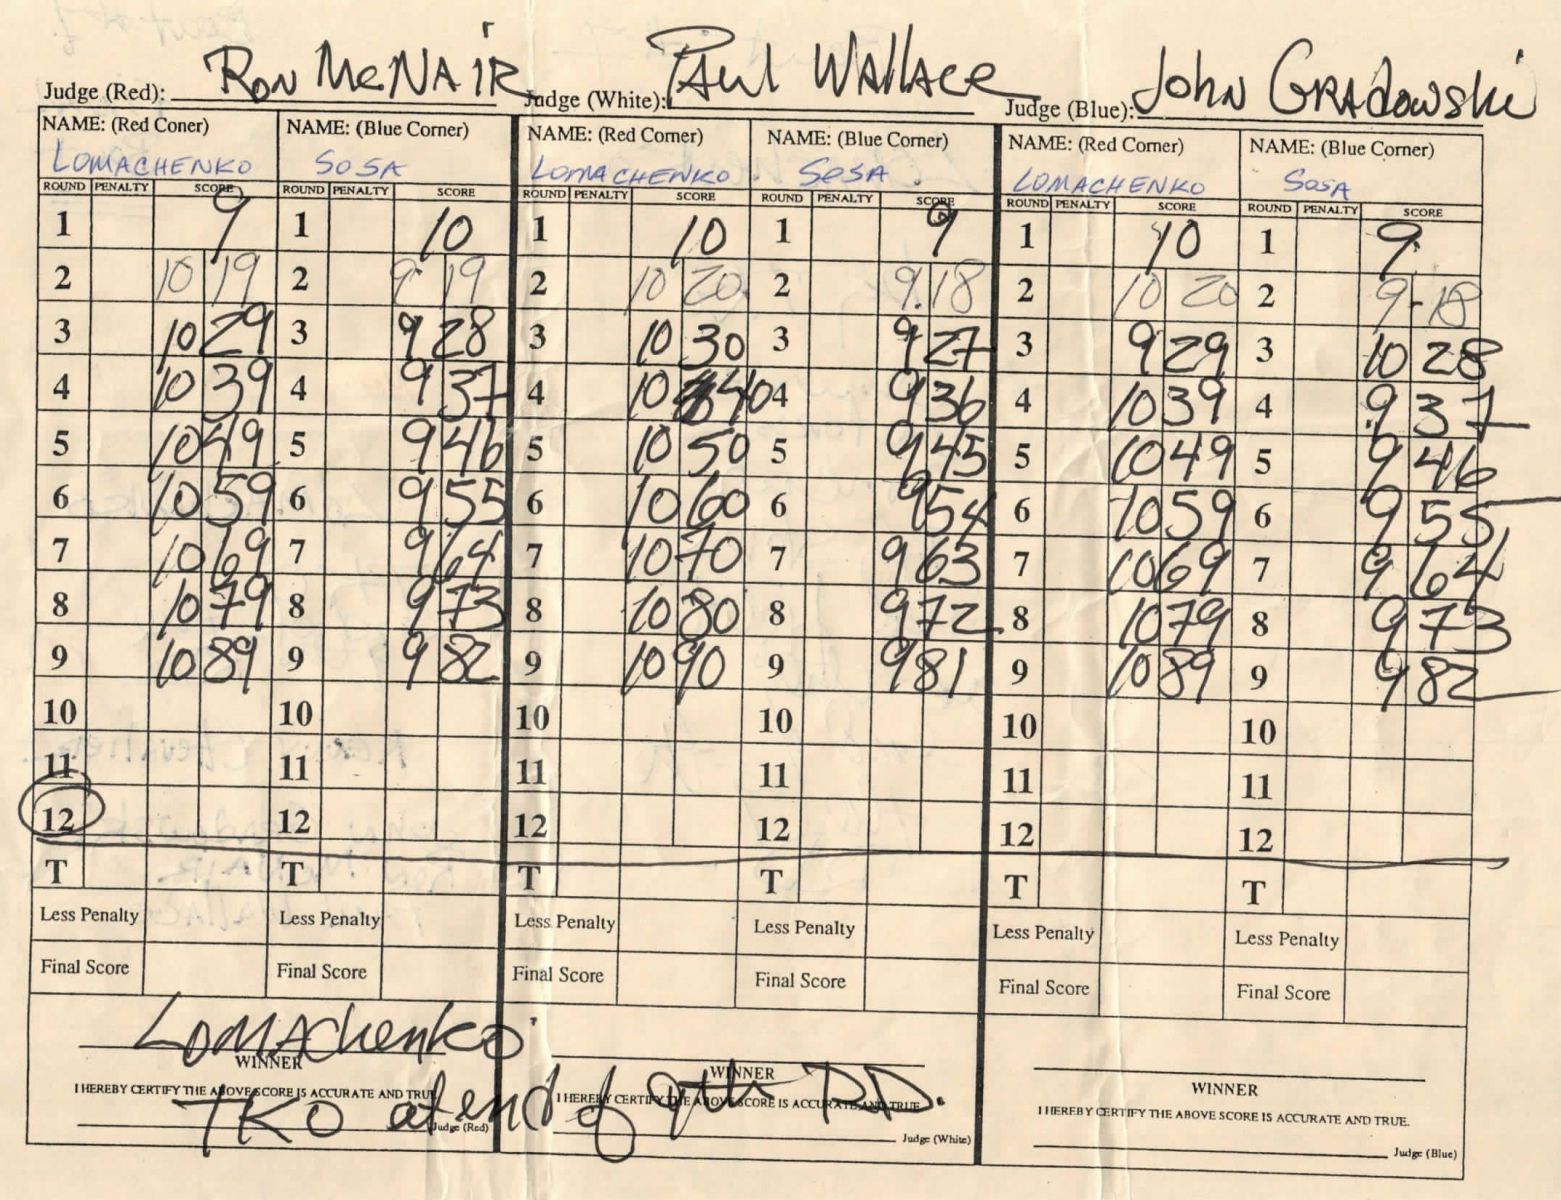 Judge (Red): Ron McNair Judge (White): Paul Wallace Judge (Blue): John Gradowski
NAME: (Red Coner) NAME: (Blue Corner) NAME: (Red Corner) NAME: (Blue Corner) NAME: (Red Corner) NAME: (Blue Corner)
LOMACHENKO SOSA LOMACHENKO SOSA LOMACHENKO SOSA
ROUND PENALTY SCORE ROUND PENALTY SCORE ROUND PENALTY SCORE ROUND PENALTY SCORE ROUND PENALTY SCORE ROUND PENALTY SCORE
1 9 1 10 1 10 1 9 1 10 1 9
2 10 19 2 9 19 2 10 20 2 9 18 2 10 20 2 9-18
3 10 29 3 9 28 3 10 30 3 9 27 3 9 29 3 10 28
4 10 39 4 9 37 4 10 40 4 9 36 4 10 39 4 9 37
5 10 49 5 9 46 5 10 50 5 9 45 5 10 49 5 9 46
6 10 59 6 9 55 6 10 60 6 9 54 6 10 59 6 9 55
7 10 69 7 9 64 7 10 70 7 9 63 7 10 69 7 9 64
8 10 79 8 9 73 8 10 80 8 9 72 8 10 79 8 9 73
9 10 89 9 9 82 9 10 90 9 9 81 9 10 89 9 9 82
10 10 10 10 10 10
11 11 11 11 11 11
12 12 12 12 12 12
T T T T T T
Less Penalty Less Penalty Less Penalty Less Penalty Less Penalty Less Penalty
Final Score Final Score Final Score Final Score Final Score Final Score
Lomachenko
WINNER WINNER WINNER
I HEREBY CERTIFY THE ABOVE SCORE IS ACCURATE AND TRUE. I HEREBY CERTIFY THE ABOVE SCORE IS ACCURATE AND TRUE. I HEREBY CERTIFY THE ABOVE SCORE IS ACCURATE AND TRUE.
TKO at end of 9th RD.
Judge (Red) Judge (White) Judge (Blue)